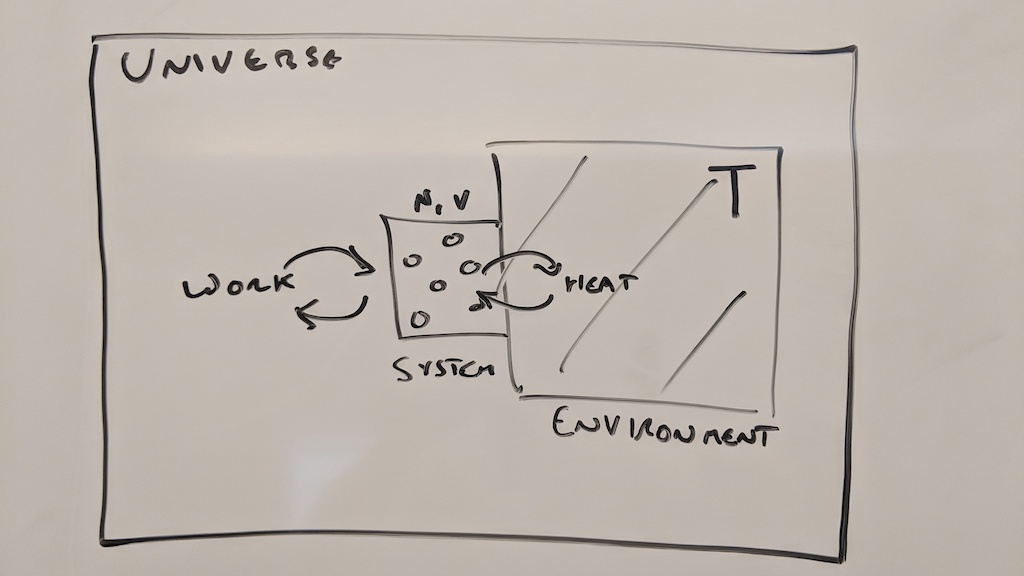 UNIVERSE
T
N, V
WORK
HEAT
SYSTEM
ENVIRONMENT